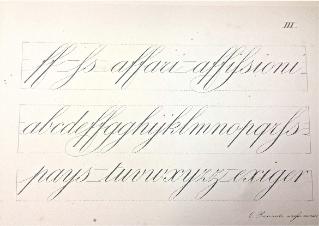 III.
ff-ſs-affari-affiſsioni
abcdeffgghijklmnopqrſs
pays-tuvwxyzz-exiger